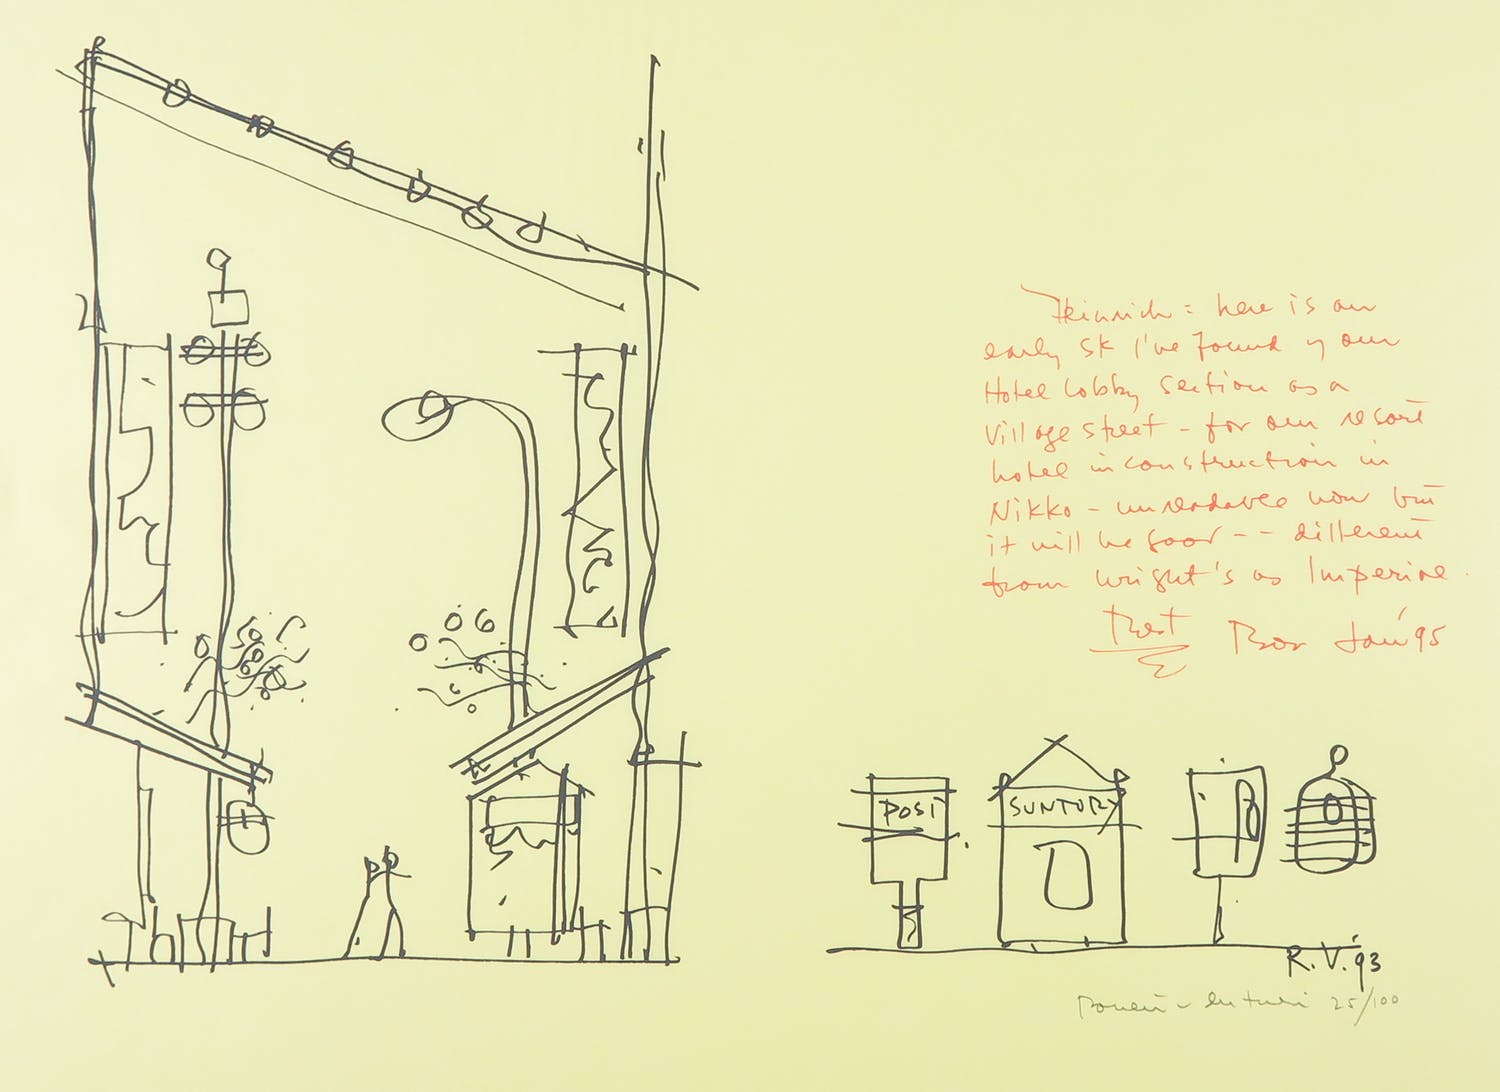 Heinrich = here is an
early sk I've found of our
Hotel lobby section as a
Village street – for our resort
hotel in construction in
Nikko – unreadable now but
it will be good – – different
from Wright's as Imperial.
Best Bob Jan '95
POST
SUNTORY
R.V. '93
Robert Venturi 25/100